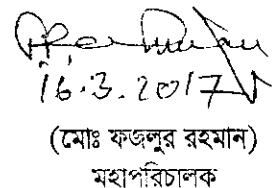 16.3.2017
(মোঃ ফজলুর রহমান)
মহাপরিচালক